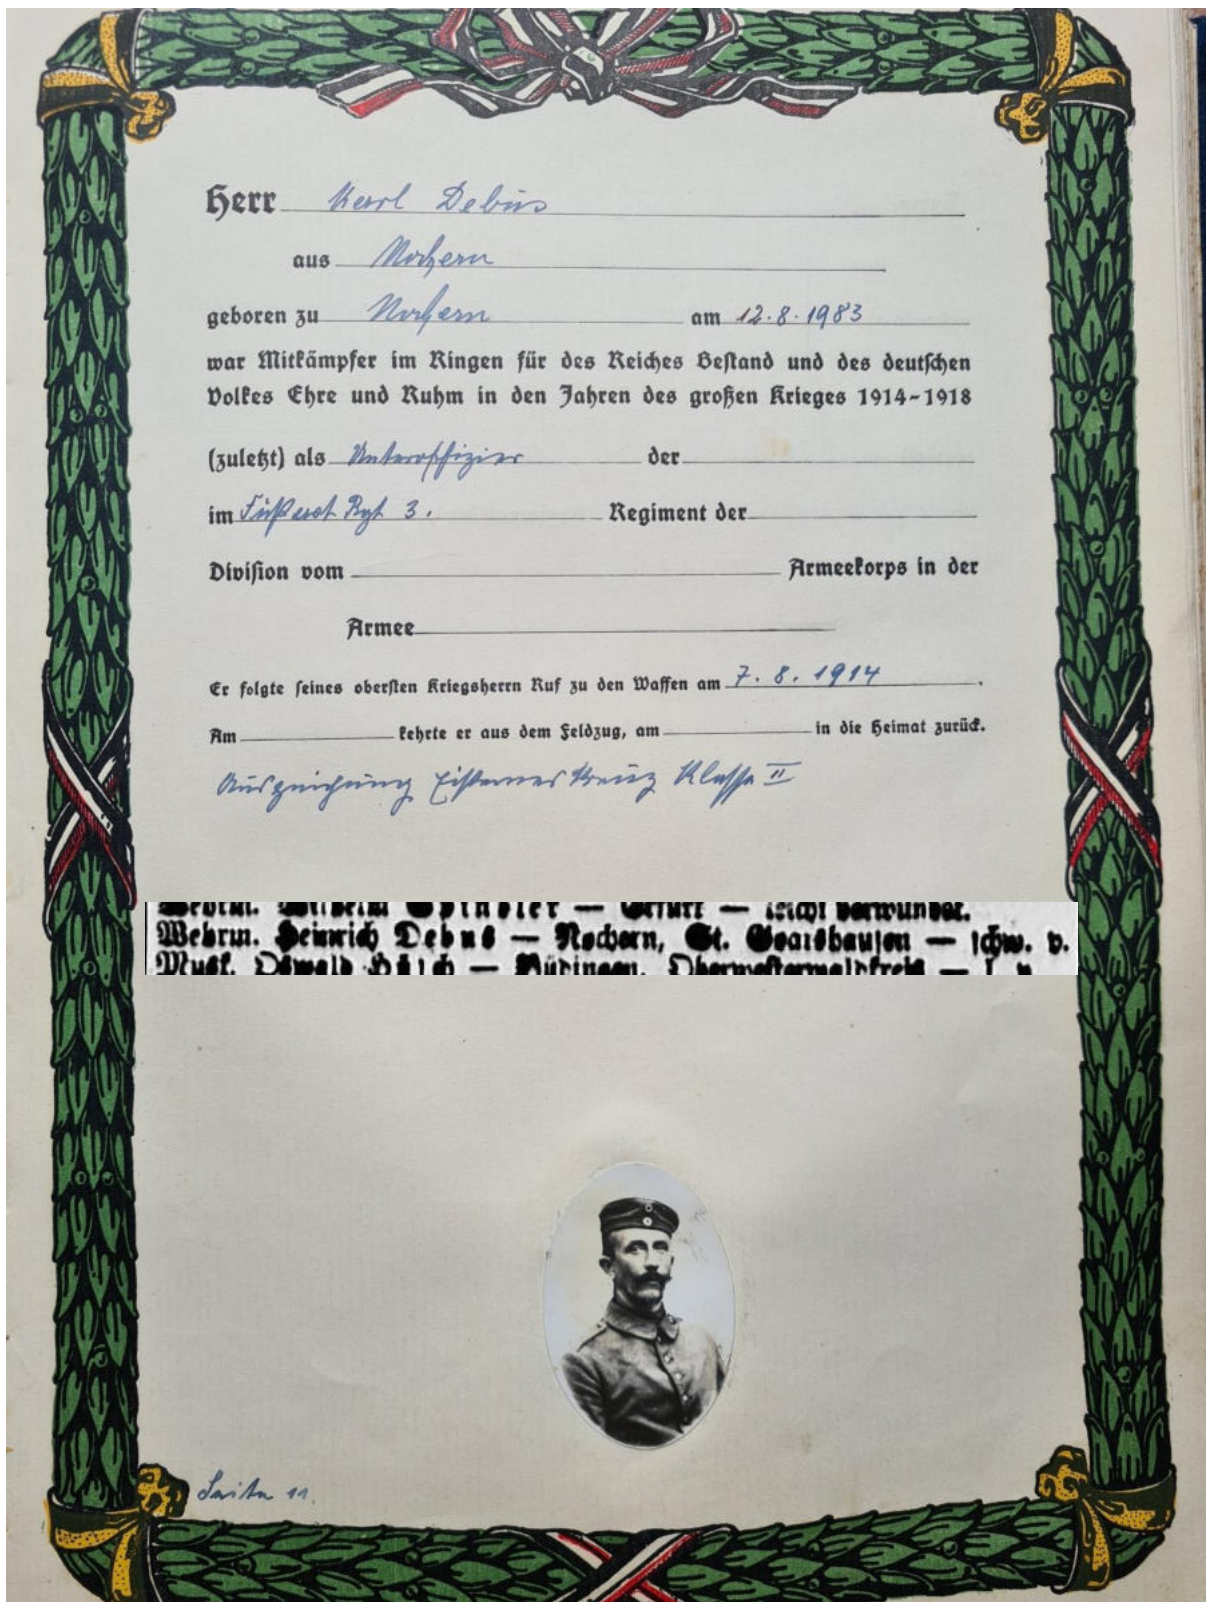 Herr Karl Debus
aus Nochern
geboren zu Nochern am 12.8.1983
war Mitkämpfer im Ringen für des Reiches Bestand und des deutschen
Volkes Ehre und Ruhm in den Jahren des großen Krieges 1914-1918
(zuletzt) als Unteroffizier der
im Fußart Rgt 3. Regiment der
Division vom Armeekorps in der
Armee
Er folgte seines obersten Kriegsherrn Ruf zu den Waffen am 7.8.1914.
Am kehrte er aus dem Feldzug, am in die Heimat zurück.
Auszeichnung Eisernes Kreuz Klasse II
Wehrm. Wilhelm — Erfurt — leicht verwundet.
Wehrm. Heinrich Debus — Nochern, St. Goarshausen — schw. v.
Musk. Oswald — Oberwesterwaldkreis — l. v.
Seite 11.